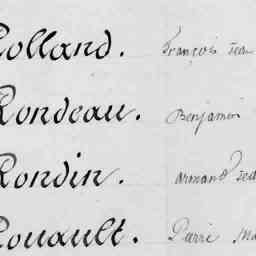 Rolland. François Jean
Rondeau. Benjamin
Rondin. armand Jea
Rouault. Pierre Ma